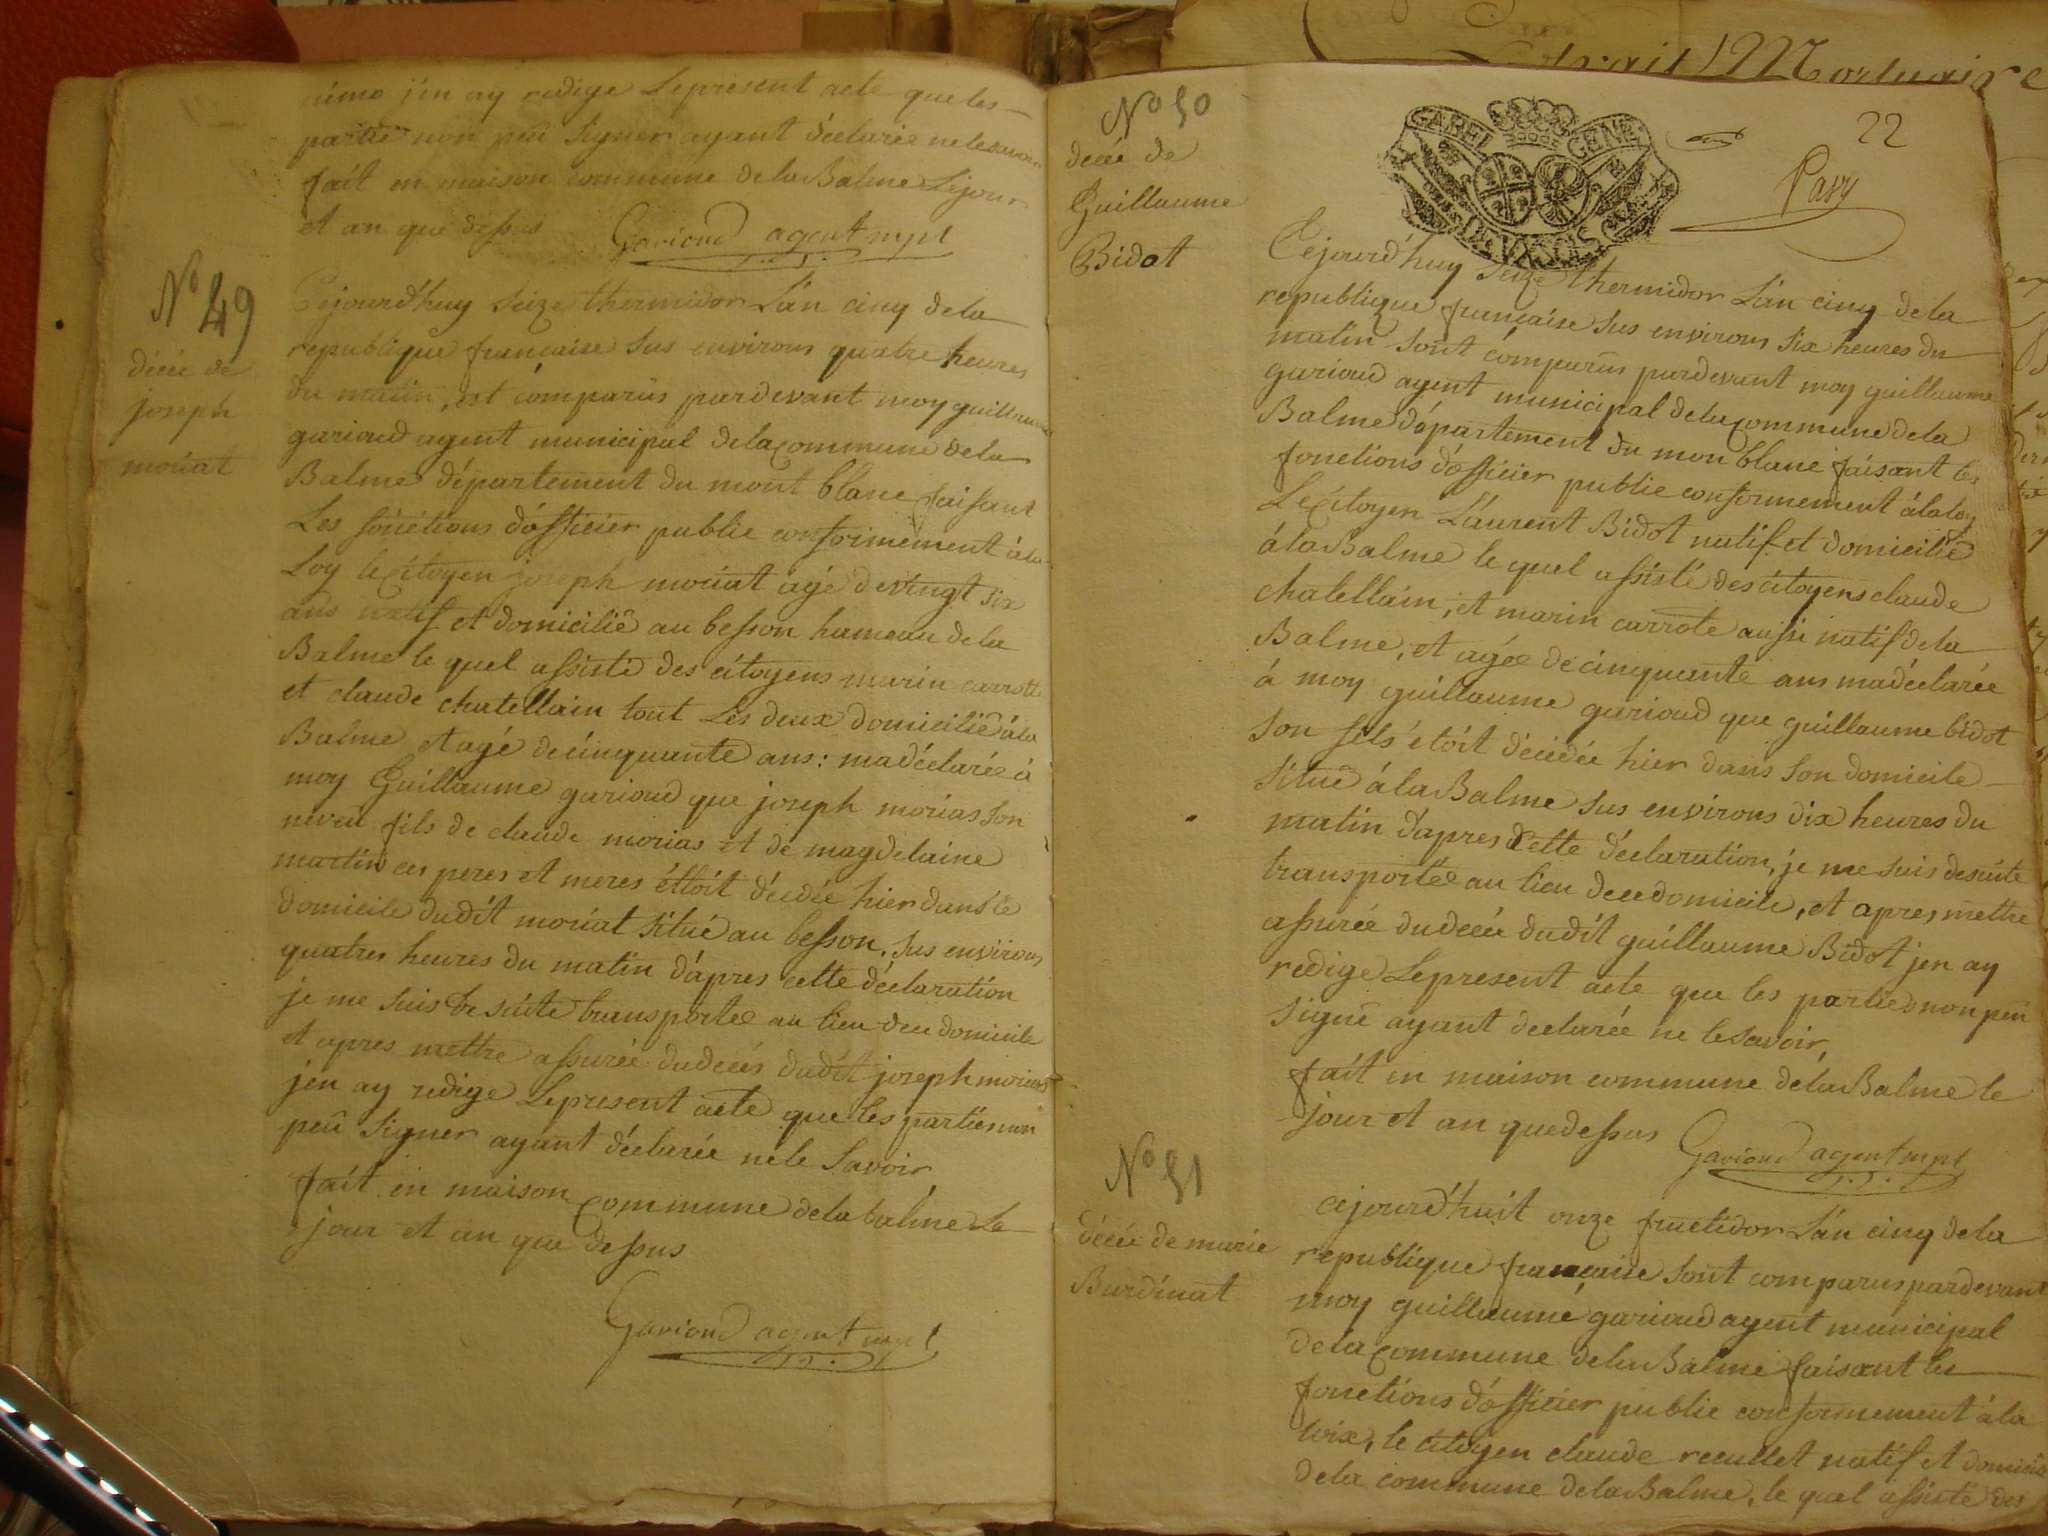 nimo j'en ay redige Lepresent acte que les
partie non peû Signer ayant déclarée nelesavoir
fait en maison commune delaBalme Lejour
et an que dessus Garioud agent mpl
N° 49
décée de
joseph
moriat
Cejourd'huy Seize thermidor L'an cinq dela
republique francaise sus environs quatre heures
du matin, est comparus pardevant moy guillaume
garioud agent municipal delacommune dela
Balme département du mont blanc faisant
Les fonctions d'officier public conformement àla
Loy leCitoyen joseph moriat agé devingt six
ans natif et domicilié au besson hameau dela
Balme le quel assisté des citoyens marin carrotte
et claude chatellain tout Les deux domicilié àla
Balme et agé decinquante ans: madéclarée à
moy Guillaume garioud que joseph morias son
neveû fils de claude morias et de magdelaine
martin ces peres et meres éttoit décédée hier dans le
domicile dudit moriat situé au besson. sus environs
quatres heures du matin d'apres cette déclaration
je me suis de suite transportée au lieu dece domicile
et apres mettre assurée dudecés dudit joseph morias
jen ay redige Lepresent acte que les parties non
peû Signer ayant déclarée nele Savoir
fait in maison commune delabalme Le
jour et an que dessus
Garioud agent mpl
N° 50
décée de
Guillaume
Bidot
GABEL GENE
22
Cejourd'huy seize thermidor L'an cinq dela
republique francaise sus environs six heures du
matin sont comparus pardevant moy guillaume
garioud agent municipal delacommune dela
Balme département du mon blanc faisant les
fonctions d'officier public conformement àlaloy
LeCitoyen Laurent Bidot natif et domicilié
àlaBalme le quel assisté des citoyens claude
chatellain, et marin carrote aussi natif dela
Balme, et agée decinquante ans madéclarée
à moy guillaume garioud que guillaume bidot
son fils étoit décédée hier dans son domicile
situé àlaBalme sus environs dix heures du
matin d'apres Cette déclaration, je me suis desuite
transportée au lieu dece domicile, et apres mettre
assurée dudecée dudit guillaume Bidot jen ay
redige Lepresent acte que les parties non peû
signé ayant declarée ne lesavoir
fait in maison commune delaBalme le
jour et an quedessus Garioud agent mpl
N° 51
décée de marie
Burdinat
cejourd'huit onze fructidor L'an cinq dela
republique francaise sont comparus pardevant
moy guillaume garioud agent municipal
delacommune delaBalme faisant les
fonctions d'officier public conformement àla
loix, le citoyen claude recullet natif et domicilié
dela commune delaBalme, le quel assisté des